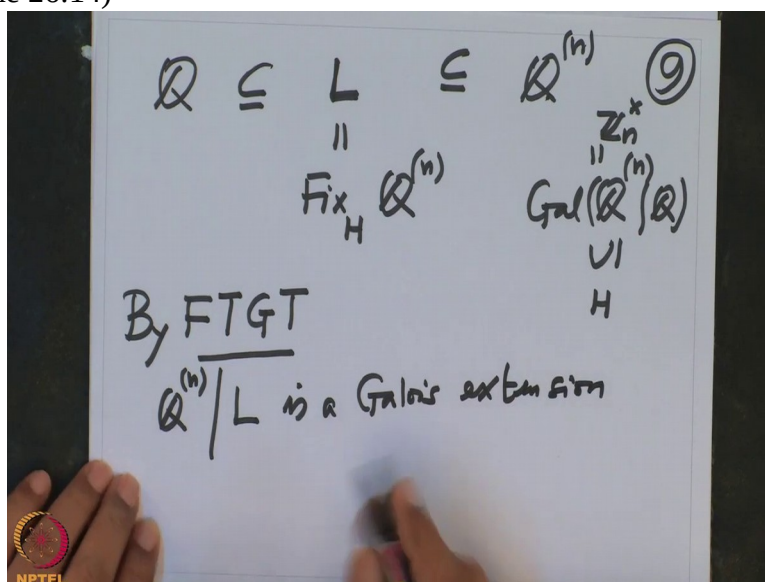 ℚ ⊆ L ⊆ ℚ^(n) ⑨
ℤ_n^×
|| ||
Fix_H ℚ^(n) Gal(ℚ^(n)|ℚ)
∪|
H
By FTGT
ℚ^(n) | L is a Galois extension
NPTEL